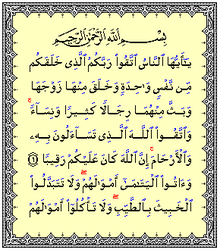 بِسْمِ اللَّهِ الرَّحْمَٰنِ الرَّحِيمِ
يَٰٓأَيُّهَا النَّاسُ اتَّقُوا۟ رَبَّكُمُ الَّذِى خَلَقَكُم
مِّن نَّفْسٍ وَٰحِدَةٍ وَخَلَقَ مِنْهَا زَوْجَهَا
وَبَثَّ مِنْهُمَا رِجَالًا كَثِيرًا وَنِسَآءً ۚ
وَاتَّقُوا۟ اللَّهَ الَّذِى تَسَآءَلُونَ بِهِۦ
وَالْأَرْحَامَ ۚ إِنَّ اللَّهَ كَانَ عَلَيْكُمْ رَقِيبًا ١
وَءَاتُوا۟ الْيَتَٰمَىٰٓ أَمْوَٰلَهُمْ ۖ وَلَا تَتَبَدَّلُوا۟
الْخَبِيثَ بِالطَّيِّبِ ۖ وَلَا تَأْكُلُوٓا۟ أَمْوَٰلَهُمْ